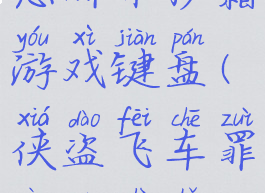 yóu xì jiàn pán
游戏键盘(
xiá dào fēi chē zuì
侠盗飞车罪